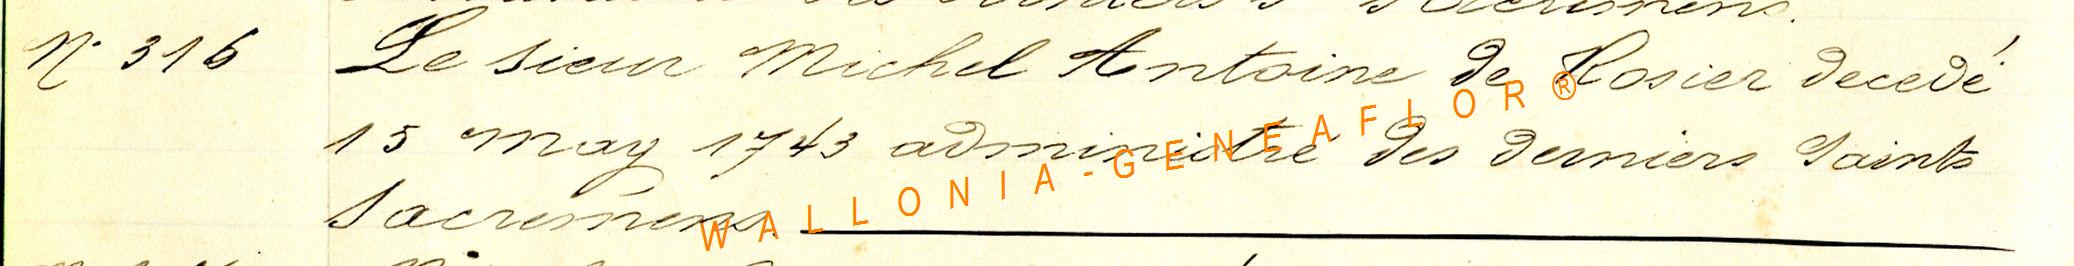 Sacremens.
N° 316 Le sieur Michel Antoine de Rosier decedé
15 may 1743 administré des derniers saints
Sacremens.
WALLONIA-GENEAFLOR®